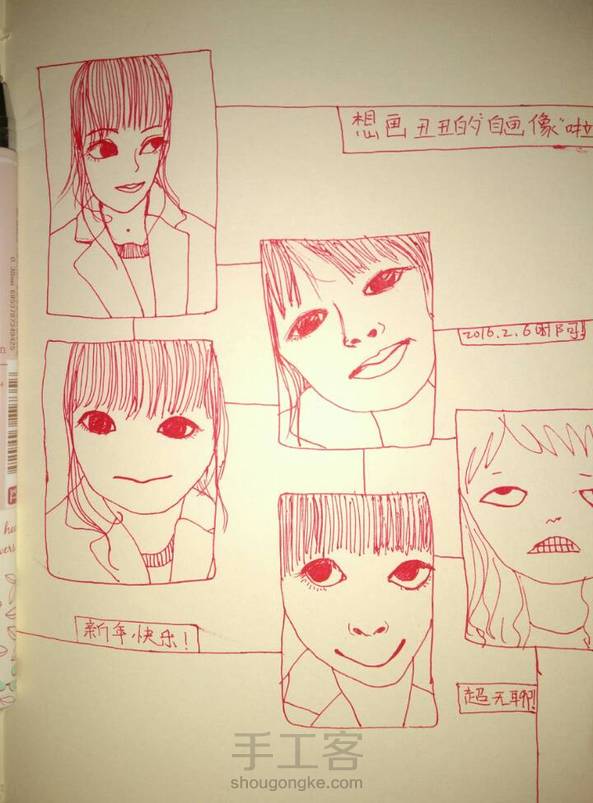 想画丑丑的“自画像”啦
2016.2.6
新年快乐!
超无聊!
手工客
shougongke.com